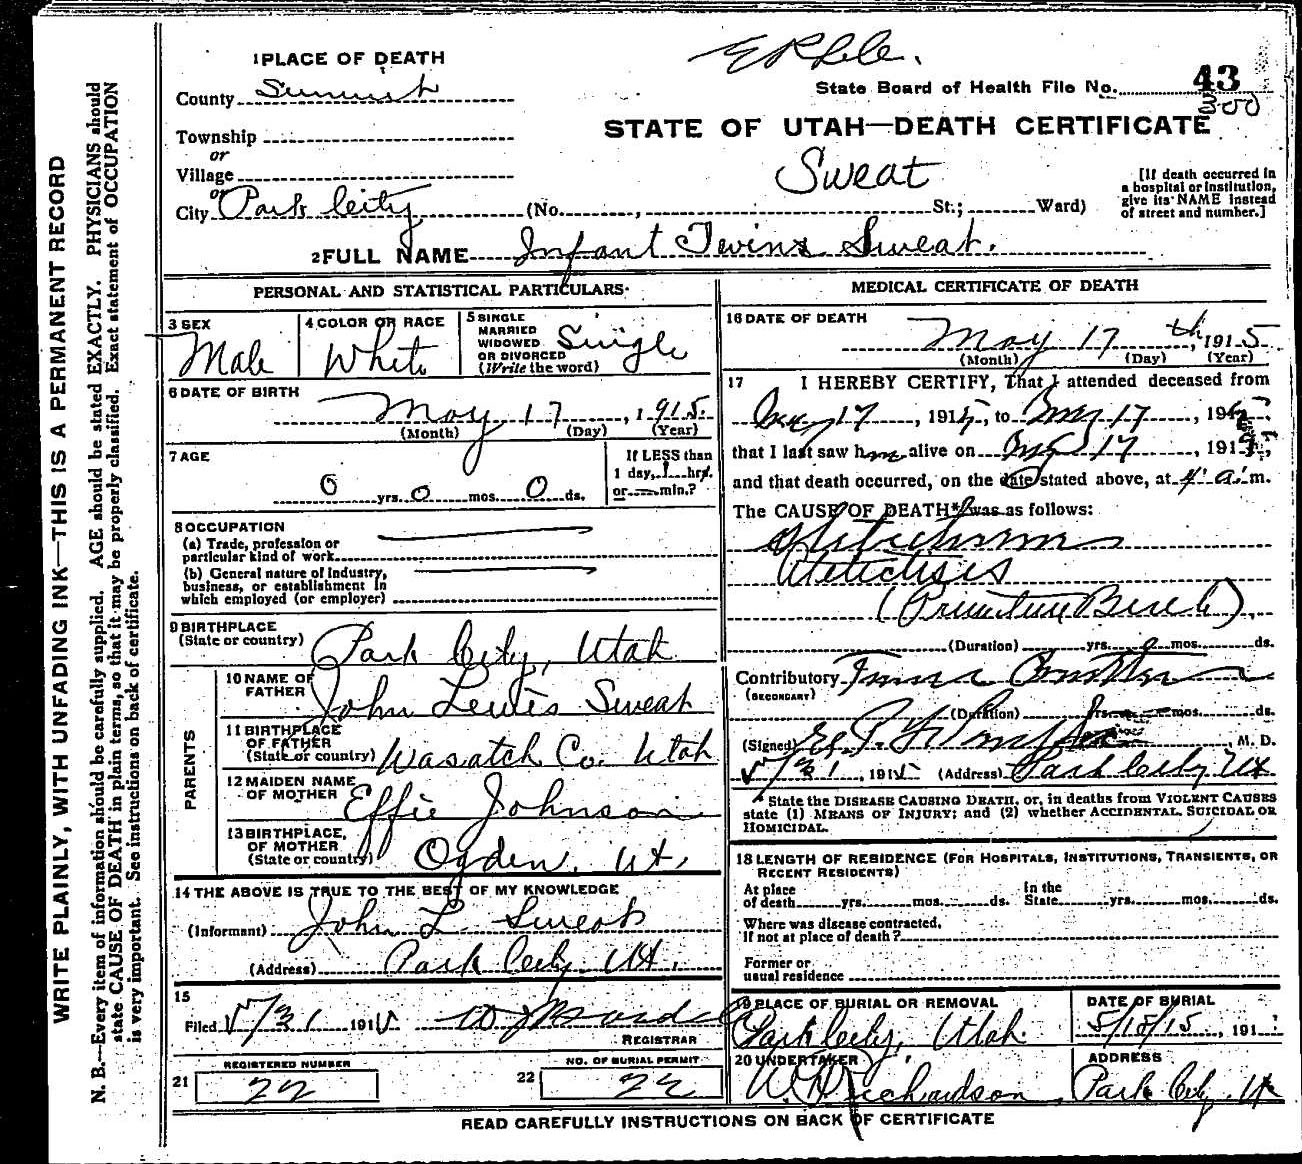 1 PLACE OF DEATH
County Summit
State Board of Health File No. 43
STATE OF UTAH—DEATH CERTIFICATE
Township
or
Village
or
City Park City (No. , St.; Ward)
Sweat
[If death occurred in
a hospital or institution,
give its NAME instead
of street and number.]
2 FULL NAME Infant Twins Sweat.
PERSONAL AND STATISTICAL PARTICULARS
3 SEX
Male
4 COLOR OR RACE
White
5 SINGLE
MARRIED
WIDOWED
OR DIVORCED
(Write the word)
Single
6 DATE OF BIRTH
May 17, 1915.
(Month) (Day) (Year)
7 AGE
0 yrs. 0 mos. 0 ds.
If LESS than
1 day, 1 hrs.
or min.?
8 OCCUPATION
(a) Trade, profession or
particular kind of work
(b) General nature of industry,
business, or establishment in
which employed (or employer)
9 BIRTHPLACE
(State or country)
Park City, Utah
PARENTS
10 NAME OF
FATHER
John Lewis Sweat
11 BIRTHPLACE
OF FATHER
(State or country)
Wasatch Co. Utah
12 MAIDEN NAME
OF MOTHER
Effie Johnson
13 BIRTHPLACE,
OF MOTHER
(State or country)
Ogden, Ut.
14 THE ABOVE IS TRUE TO THE BEST OF MY KNOWLEDGE
(Informant) John L Sweat
(Address) Park City Ut.
15
Filed 5/31 1915
REGISTRAR
21 REGISTERED NUMBER
22
22 NO. OF BURIAL PERMIT
22
MEDICAL CERTIFICATE OF DEATH
16 DATE OF DEATH
May 17th, 1915
(Month) (Day) (Year)
17 I HEREBY CERTIFY, That I attended deceased from
May 17, 1915, to May 17, 191
that I last saw him alive on May 17, 191
and that death occurred, on the date stated above, at 4 a.m.
The CAUSE OF DEATH* was as follows:
(Premature Birth)
(Duration) yrs. mos. ds.
Contributory
(SECONDARY)
(Duration) yrs. mos. ds.
(Signed) M. D.
5/31, 1915 (Address) Park City Ut
* State the DISEASE CAUSING DEATH, or, in deaths from VIOLENT CAUSES
state (1) MEANS OF INJURY; and (2) whether ACCIDENTAL, SUICIDAL OR
HOMICIDAL.
18 LENGTH OF RESIDENCE (FOR HOSPITALS, INSTITUTIONS, TRANSIENTS, OR
RECENT RESIDENTS)
At place
of death yrs. mos. ds.
In the
State yrs. mos. ds.
Where was disease contracted,
If not at place of death?
Former or
usual residence
19 PLACE OF BURIAL OR REMOVAL
Park City, Utah.
DATE OF BURIAL
5/18/15, 191
20 UNDERTAKER
Richardson
ADDRESS
Park City Ut
READ CAREFULLY INSTRUCTIONS ON BACK OF CERTIFICATE
WRITE PLAINLY, WITH UNFADING INK—THIS IS A PERMANENT RECORD
N. B.—Every item of information should be carefully supplied. AGE should be stated EXACTLY. PHYSICIANS should
state CAUSE OF DEATH in plain terms, so that it may be properly classified. Exact statement of OCCUPATION
is very important. See instructions on back of certificate.